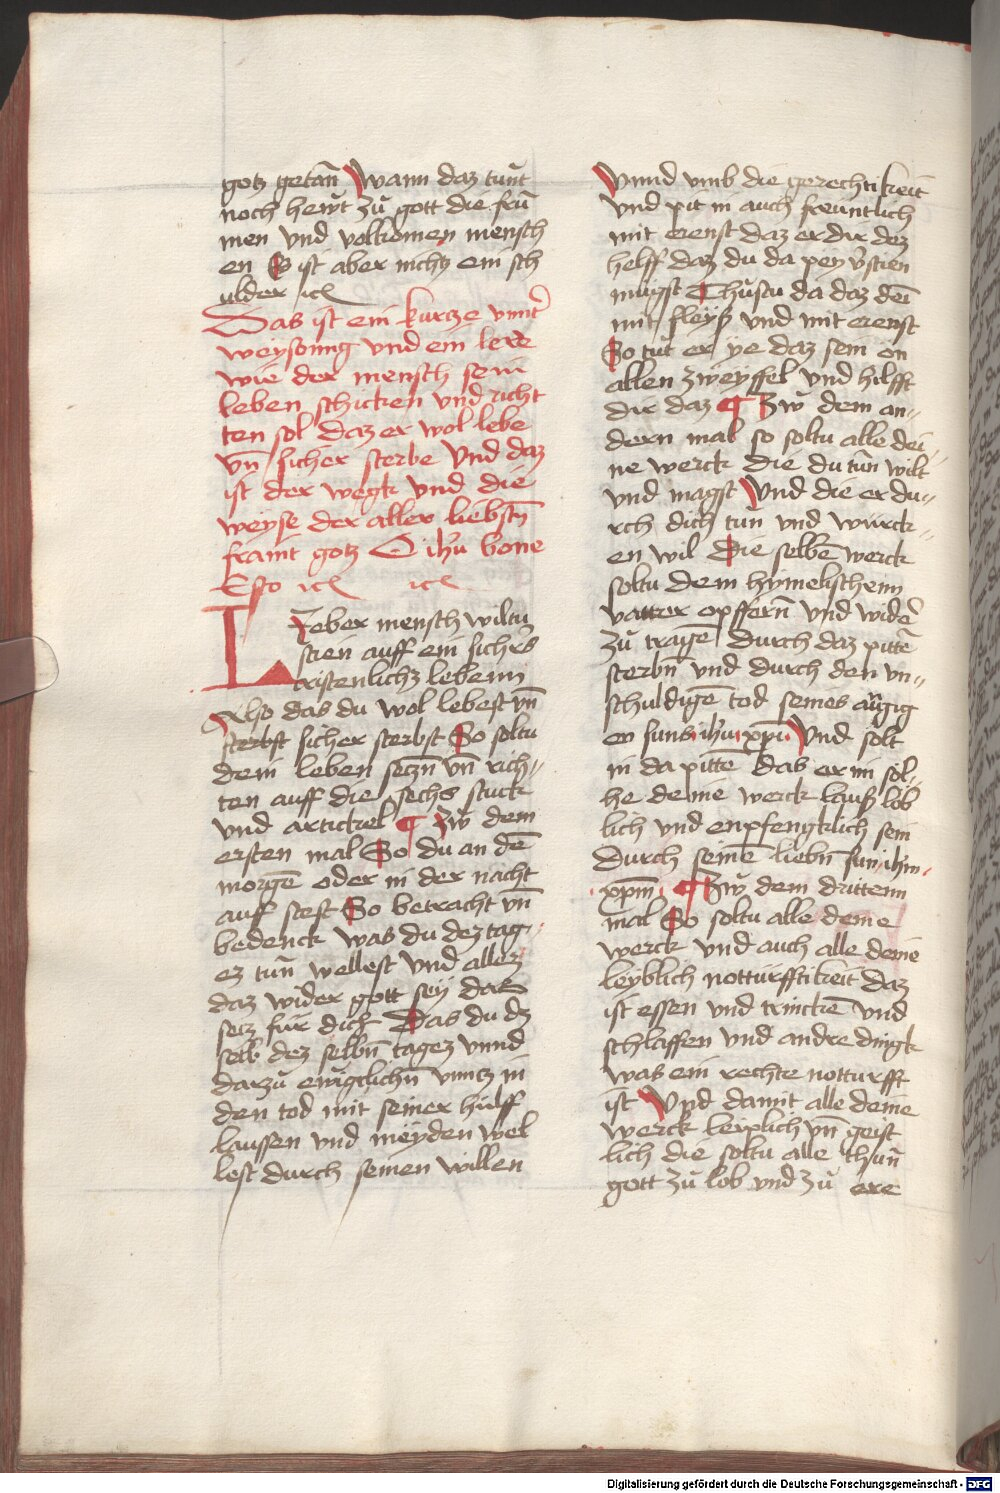 gotz getañ Wann daz tunt
noch hewt zu gott die frū
men vnd volkomen mensch
en Es ist aber nichtz ein sch
ulder ꝛcꝛ
Das ist ein kurtze vnnt̄
weysonng vnd ein lere
wie der mensch sein
leben schicken vnd richt
ten sol daz er wol lebe
vn̄ sicher sterbe Vnd daz
ist der wegk vnd die
weyse der aller liebstn̄
framt gotz O ihū bone
Esto ꝛcꝛ ꝛcꝛ
Lieber mensch wiltu
stien auff ein sichr̄s
cristenlichz lebenn
Also das du wol lebest vn̄
sterbst sicher sterbst So soltu
dein leben seczn̄ vn̄ rich-
ten auff die sechs stuck
vnd artickel ¶ Zw dem
ersten mal So du an dē
morgē oder in der nacht
auff stest So betracht vn̄
bedenck was du dez tag-
ez tun̄ wellest vnd allez
daz wider gott sey daz
secz für dich Das du dz
selb dez selbn̄ tagez vnnd
darzu ewiglichn̄ vnntz in
den tod mit seiner hülff
laussen vnd meyden wel
lest durch seinen willen
Vnnd vmb die gerechtikeit
vnd pit in auch freuntlich
mit ernst daz er dir dez
helff daz du da pey v̄stien
mügst Thustu da daz dēi
mit fleyß vnd mit ernst
So tut er ye daz sein on
allen zweyffel vnd hilfft
dir daz ¶ Zw dem an-
dern mal so soltu alle dei-
ne werck die du tun wilt
vnd magst Vnd die er du-
rch dich tun vnd würck-
en wil Die selbē werck
soltu dem hymelischenn
vatter opffern̄ vnd widē
zu tragē durch daz pittē
sterbn̄ vnd durch den vn-
schuldigē tod seines aynig
en suns ihū xp̄i Vnd solt
in da pittē das er im söl-
he deine werck lauß löb
lich vnd enpfengklich sein
durch seinē liebn̄ sun ihm-
xp̄m ¶ Zw dem drittenn
mal So soltu alle deine
werck vnd auch alle deine
leyblich notturfftikeit daz
ist essen vnd trinckē vnd
schlaffen vnd andre dingk
was ein rechte notturfft
ist Vnd damit alle deine
werck leiplich vn̄ geist
lich die soltu alle thun̄
gott zu lob vnd zu ere
Digitalisierung gefördert durch die Deutsche Forschungsgemeinschaft - DFG